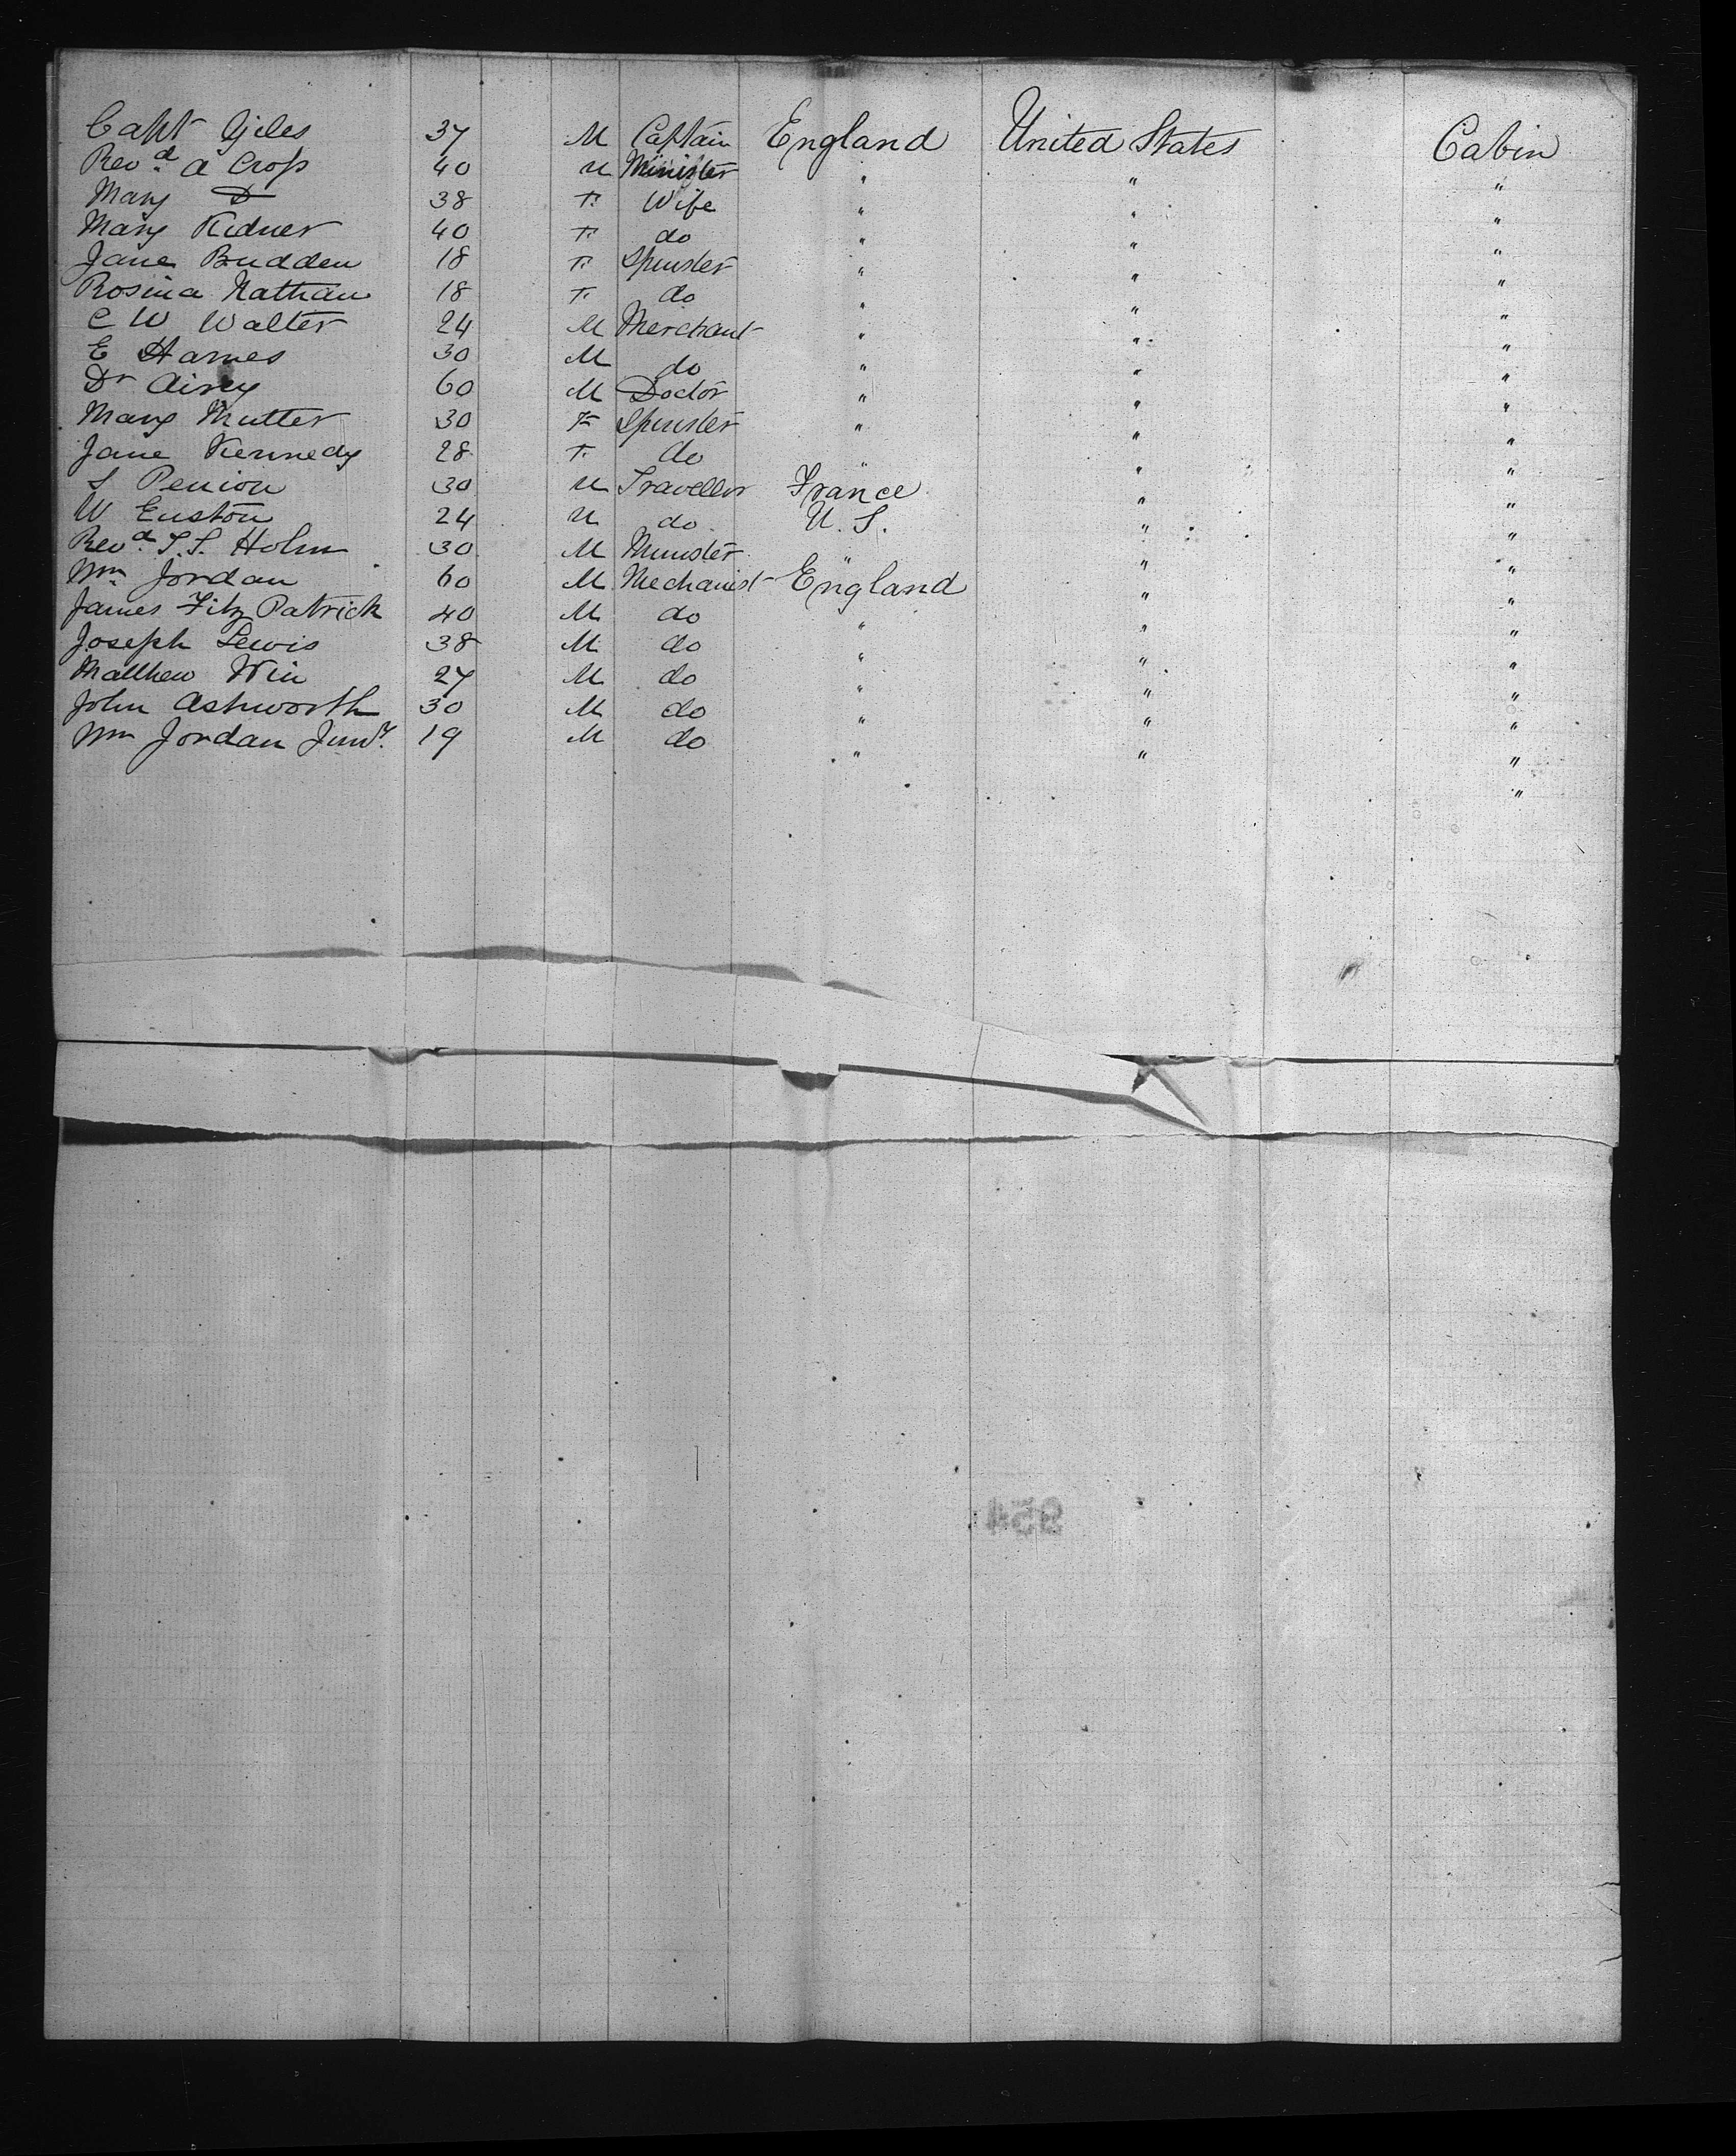 Capt Giles 37 M Captain England United States Cabin
Revd. A Cross 40 M Minister " " "
Mary D 38 F. Wife " " "
Mary Kidner 40 F. do " " "
Jane Budden 18 F. Spinster " " "
Rosina Nathan 18 F. do " " "
C W Walter 24 M Merchant " " "
E Hames 30 M do " " "
Dr Airey 60 M Doctor " " "
Mary Mutter 30 F Spinster " " "
Jane Kennedy 28 F. do " " "
30 M Traveller France " "
W Euston 24 M do U. S. " "
Revd. Holm 30 M Minister " " "
Wm Jordan 60 M Mechanist England " "
James Fitz Patrick 40 M do " " "
Joseph Lewis 38 M do " " "
Matthew Win 27 M do " " "
John Ashworth 30 M do " " "
Wm Jordan Junr. 19 M do " " "
"
954